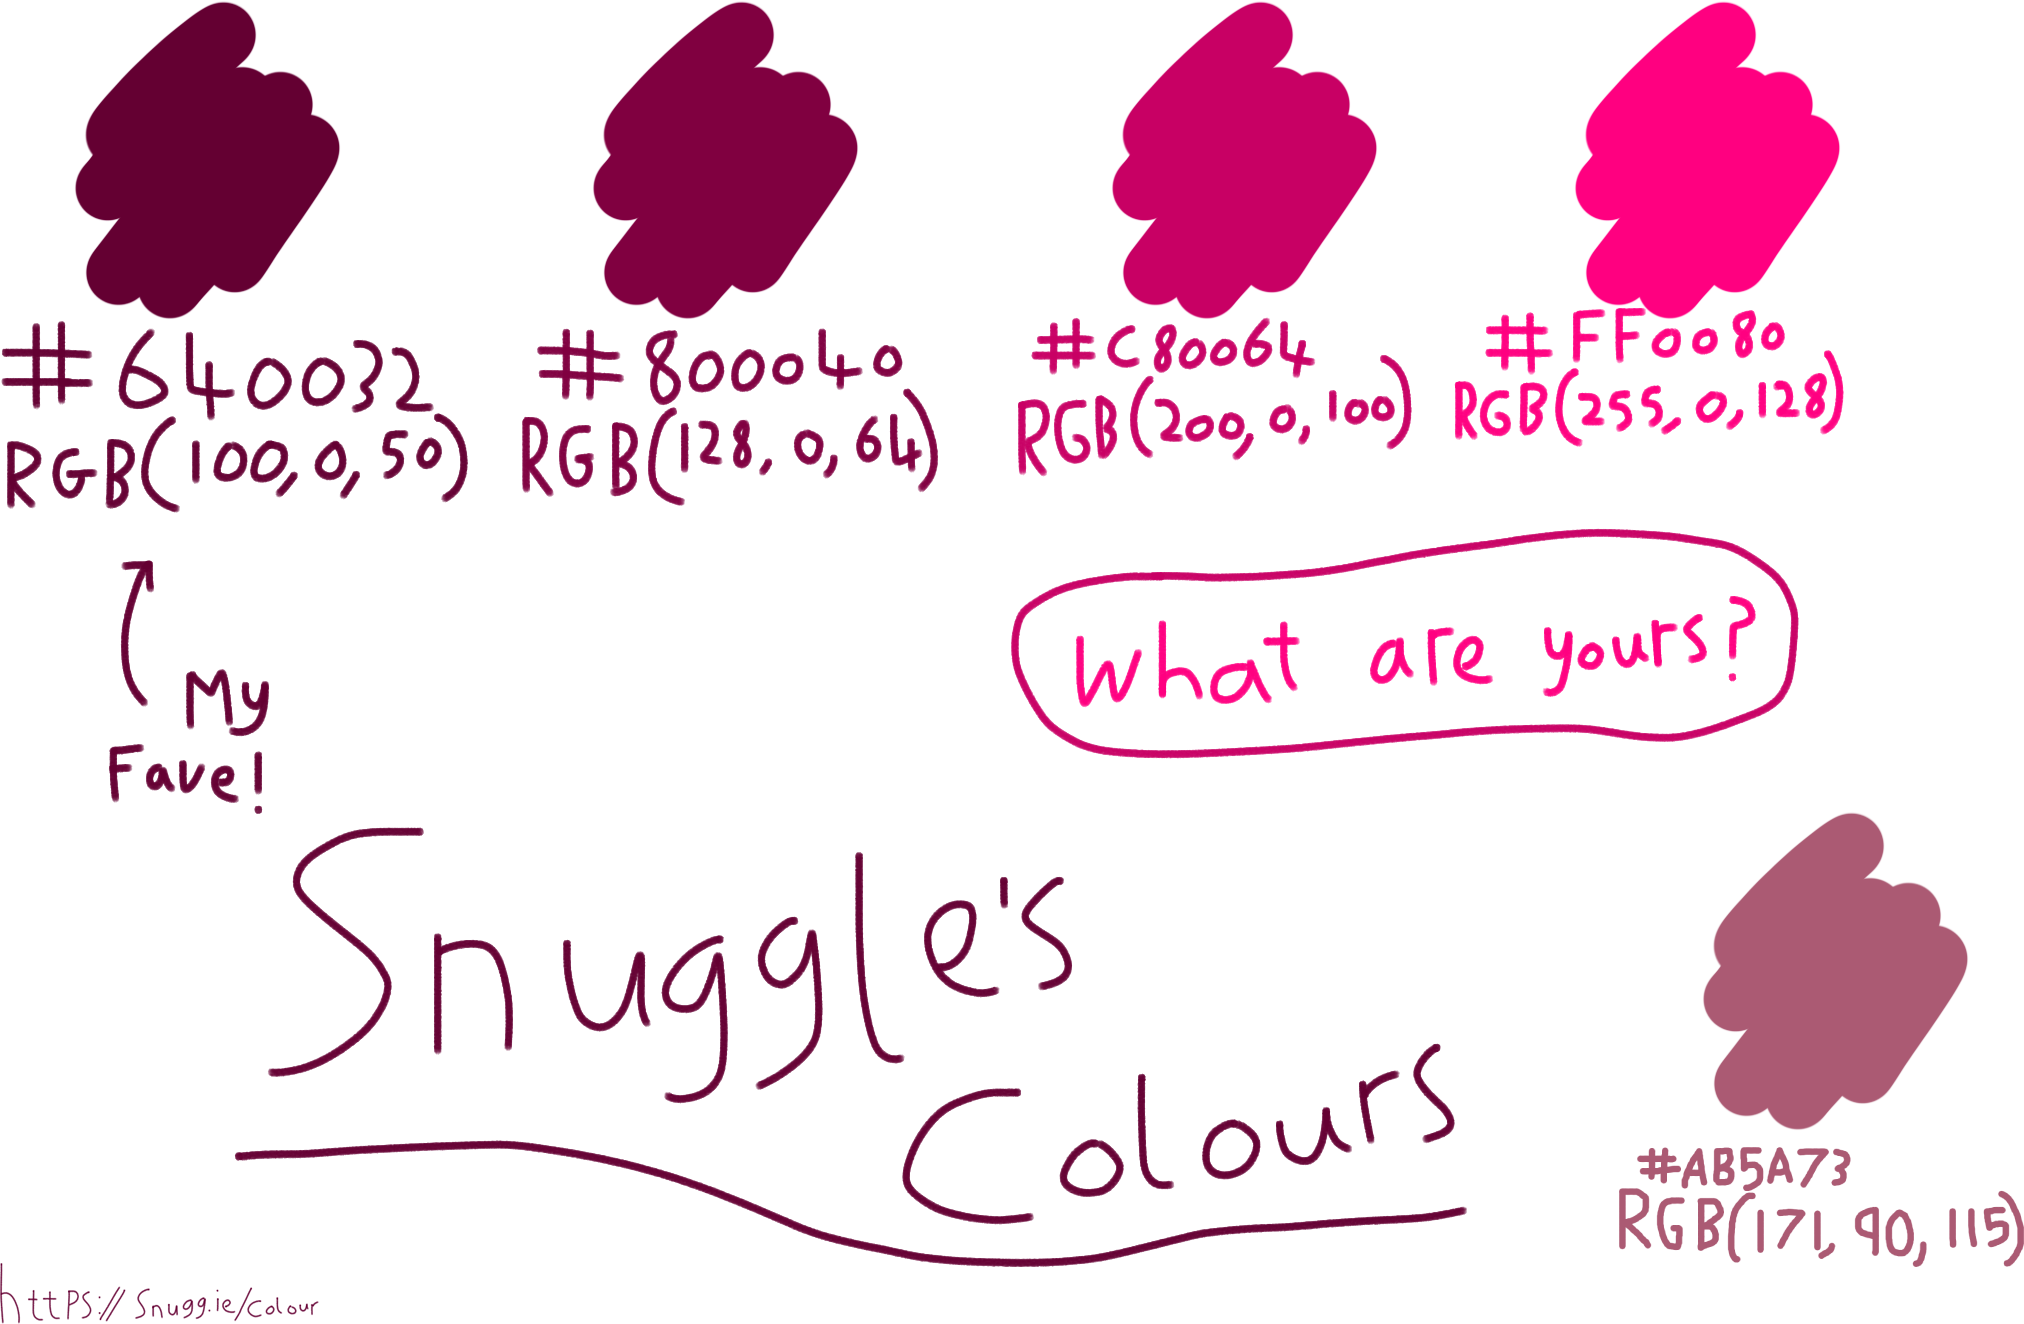 #640032
RGB(100,0,50)
#800040
RGB(128,0,64)
#C80064
RGB(200,0,100)
#FF0080
RGB(255,0,128)
My
Fave!
What are yours?
Snuggle's
Colours
#AB5A73
RGB(171,90,115)
https://snugg.ie/colour